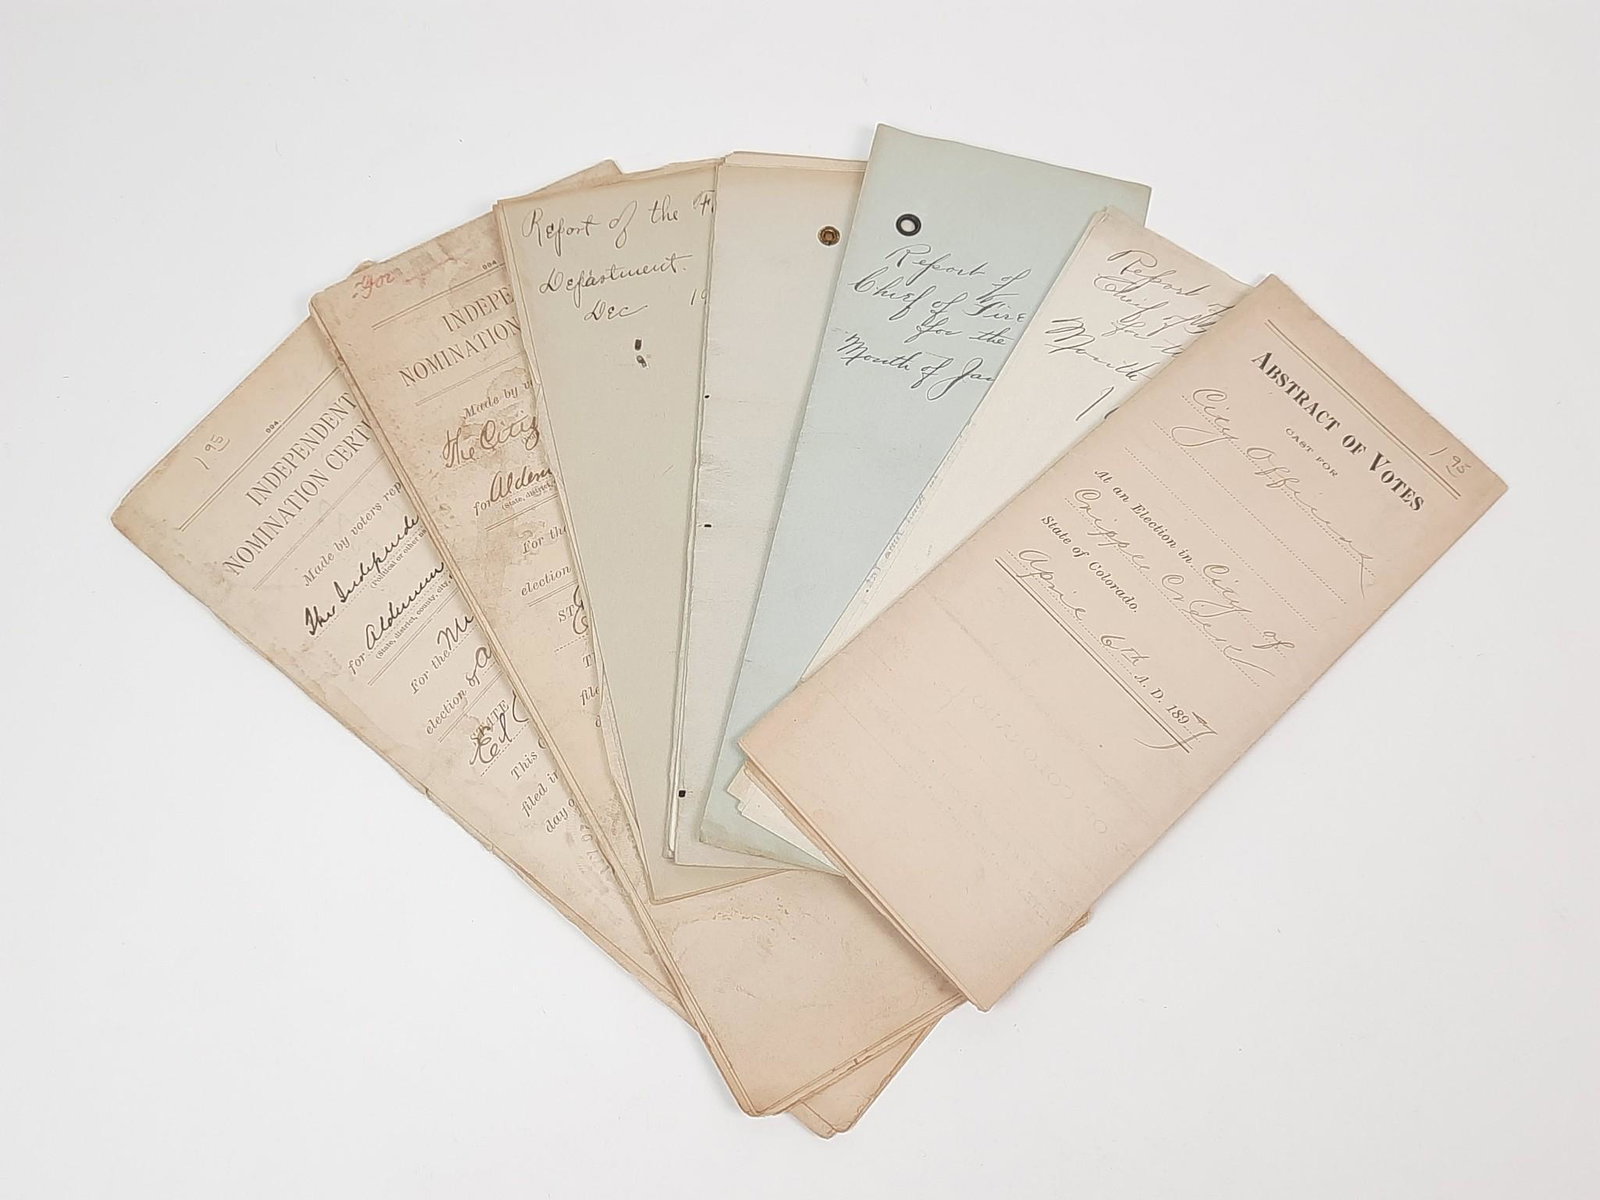 195
004.
INDEPENDENT
NOMINATION CERTI
Made by voters rep
The Independe
(Political or other na
for Aldermen
(State, district, county, city,
For the Mu
election of A
STATE
El
This
filed in
day o
For
004
INDEPE
NOMINATION
Made by v
the Citiz
for Alderm
(State, district,
For the
election
ST
T
file
Report of the F
Department.
Dec 19
Report of
Chief of Fire
for the
Month of Jan
Report of
Chief of
for th
Month
1
195
ABSTRACT OF VOTES
CAST FOR
City Officials
At an Election in City of
Cripple Creek
State of Colorado.
April 6th A. D. 1897